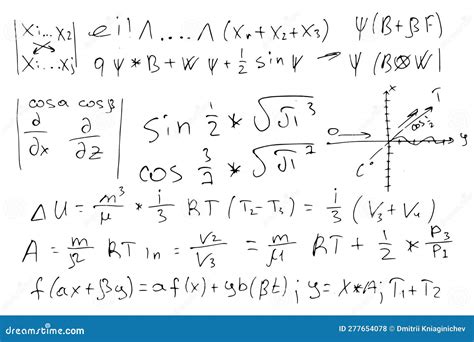 |Xi...X2| eil Λ....Λ (Xn+X2+X3) Ψ(B+βF)
|Xi...Xj| qΨ*B+WΨ+1/2 sinΨ → Ψ(BØW)
|cosα cosβ| sin 1/2 * √π³
|∂/∂x ∂/∂z| cos 3/2 * √π²
0 x y T cos 1/2 C°
ΔU = m³/μ * i/3 RT (T2-T3) = i/3 (V3+V4)
A = m/Ω RT ln = V2/V3 = m/μ RT + 1/2 * P3/P1
f(αx+βy)=αf(x)+yb(βt); y=X*A; T1+T2
dreamstime.com
ID 277654078 © Dmitrii Kniaginichev